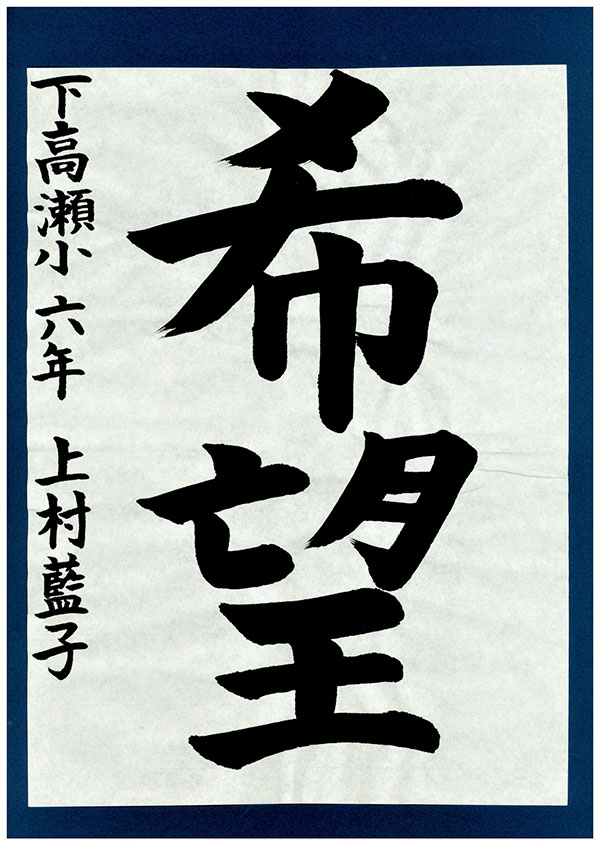 希望
下高瀬小 六年 上村藍子